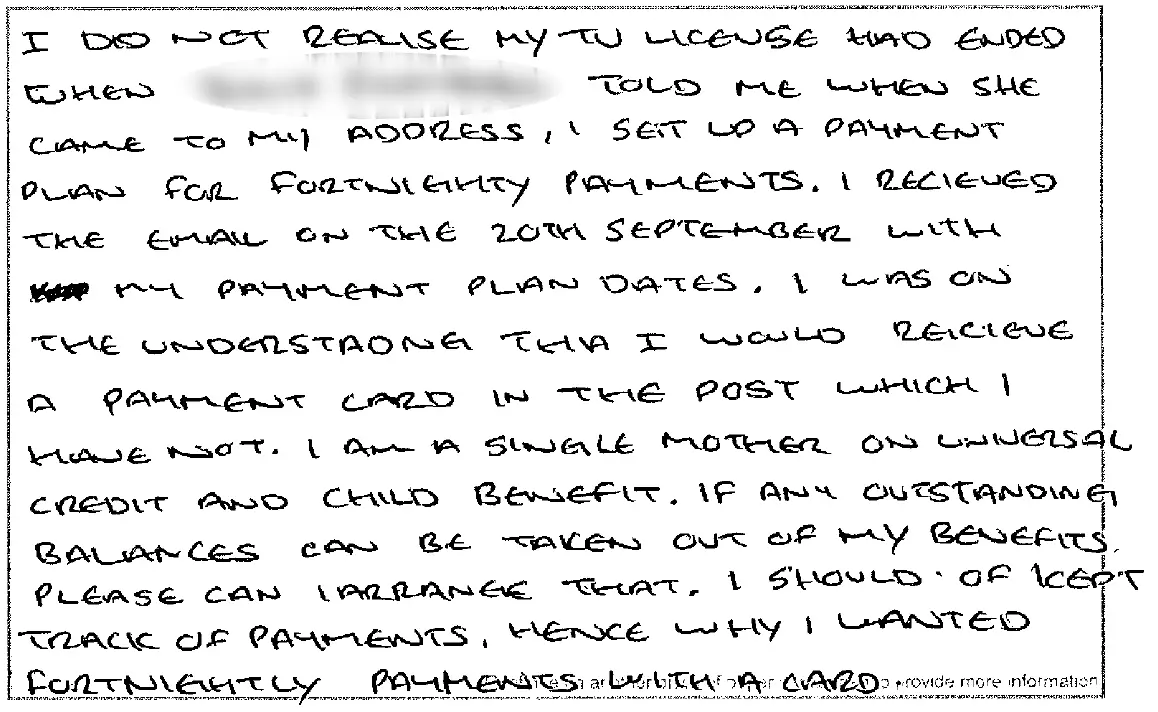 I DID NOT REALISE MY TV LICENSE HAD ENDED
WHEN TOLD ME WHEN SHE
CAME TO MY ADDRESS, I SET UP A PAYMENT
PLAN FOR FORTNIGHTY PAYMENTS. I RECIEVED
THE EMAIL ON THE 20TH SEPTEMBER WITH
MY PAYMENT PLAN DATES. I WAS ON
THE UNDERSTADNG THA I WOULD REICIEVE
A PAYMENT CARD IN THE POST WHICH I
HAVE NOT. I AM A SINGLE MOTHER ON UNIVERSAL
CREDIT AND CHILD BENEFIT. IF ANY OUTSTANDING
BALANCES CAN BE TAKEN OUT OF MY BENEFITS.
PLEASE CAN I ARRANGE THAT. I SHOULD OF KEPT
TRACK OF PAYMENTS, HENCE WHY I WANTED
FORTNIGHTLY PAYMENTS WITH A CARD
provide more information